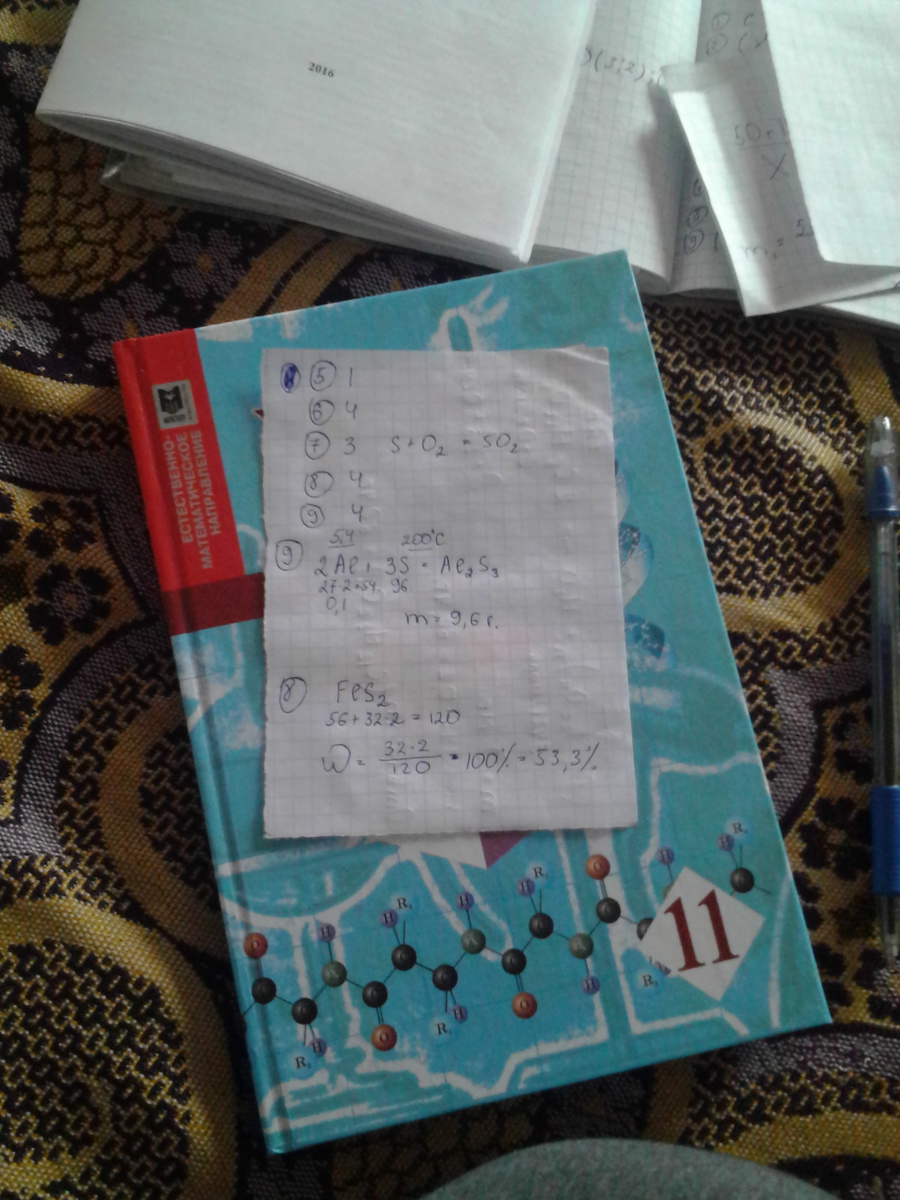 2016
50
X
5 1
6 4
7 3 S + O2 = SO2
8 4
9 4
5,4 200°C
9 2Al + 3S = Al2S3
27·2=54 96
0,1
m = 9,6 г.
8 FeS2
56+32·2 = 120
W = 32·2 / 120 · 100% = 53,3%
ЕСТЕСТВЕННО-
МАТЕМАТИЧЕСКОЕ
НАПРАВЛЕНИЕ
11